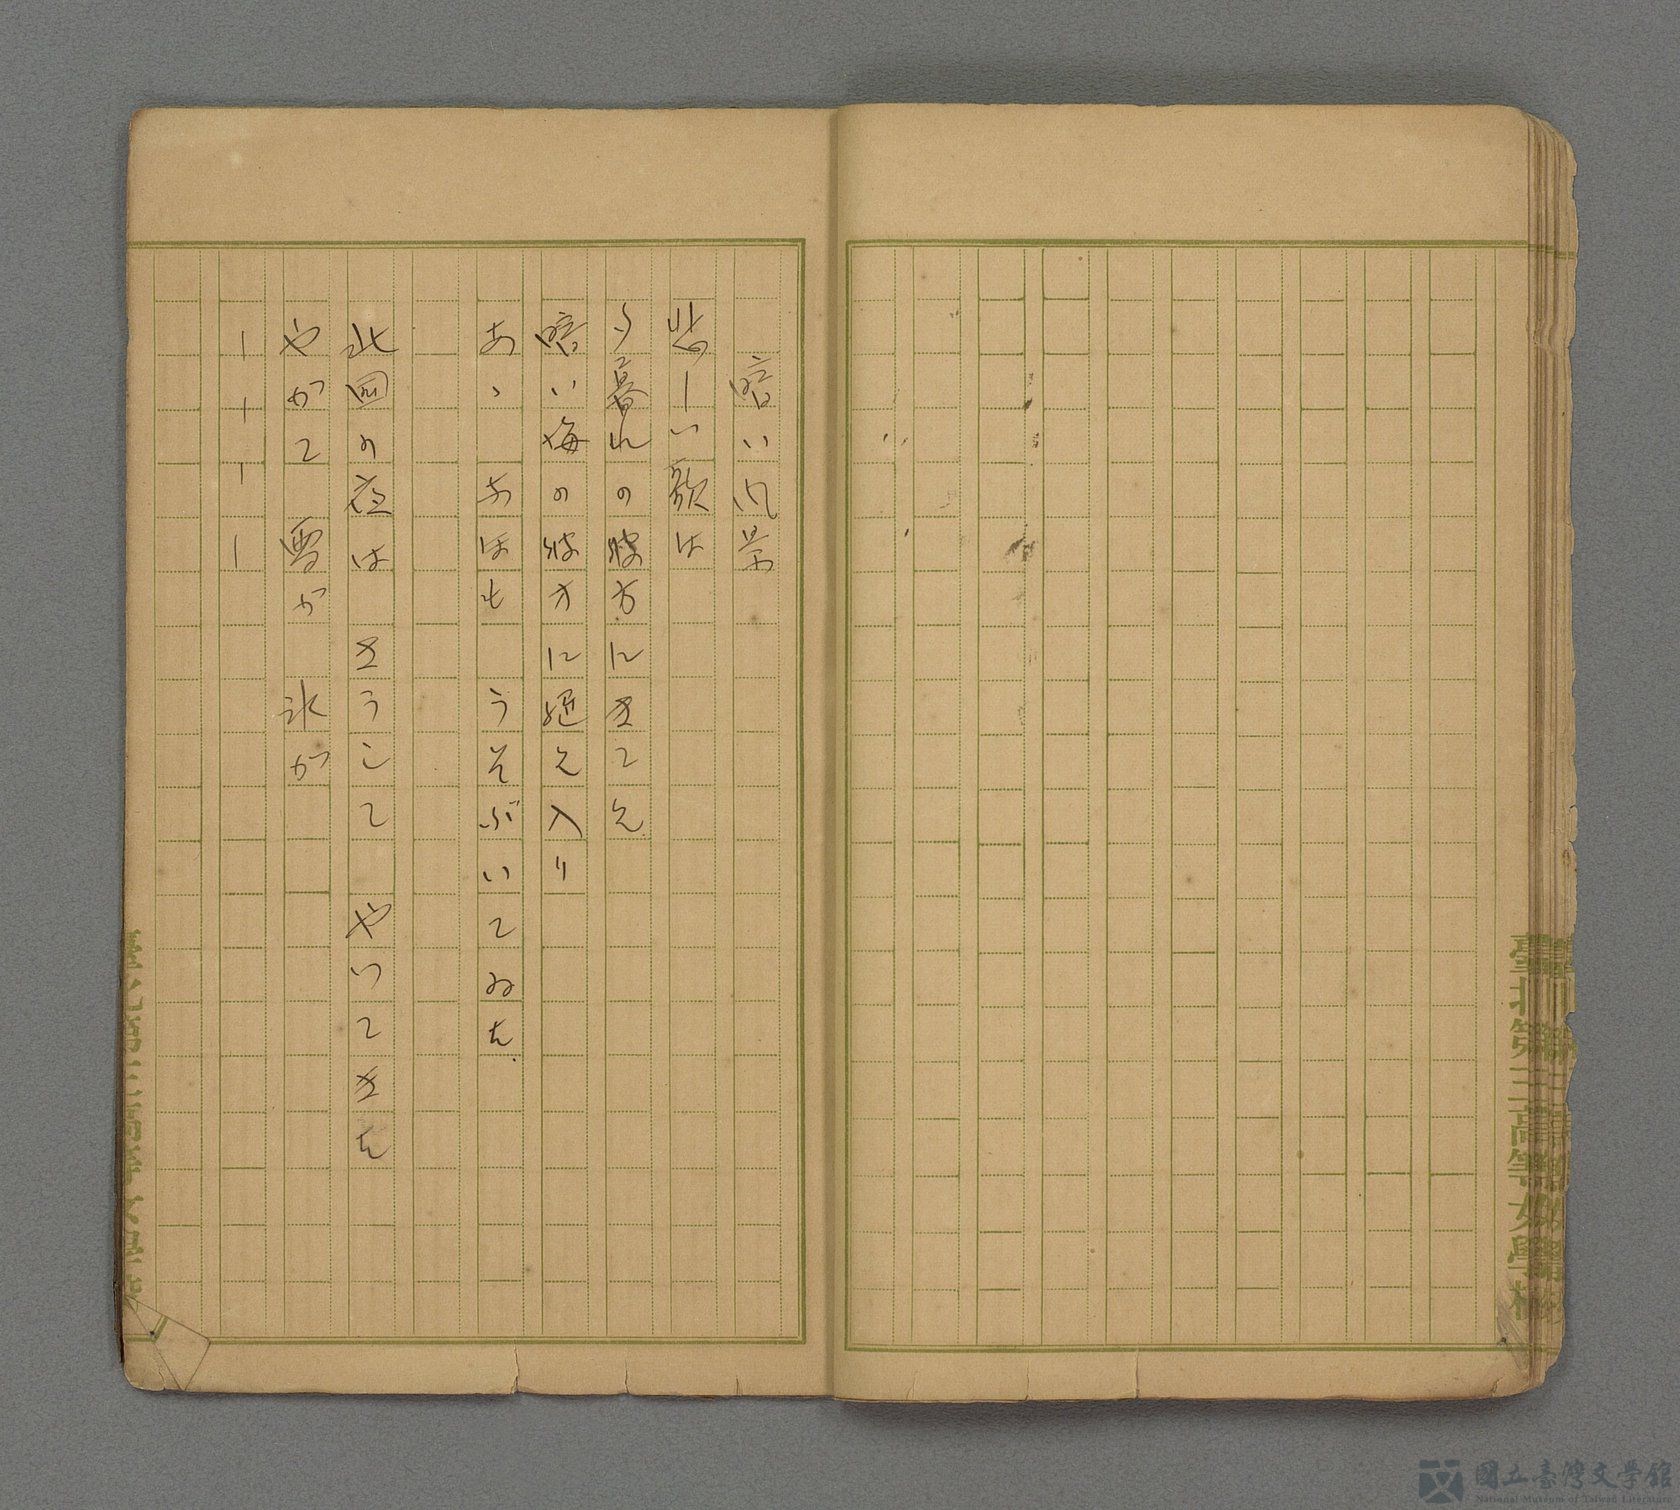 臺北第三高等女學校
暗い風景
悲しい歌は
夕暮れの彼方にきこえ
暗い海の彼方に絶え入り
あゝ なほも うそぶいてゐた.
北国の夜は さうして やつてきた
やがて 雪が 氷が
ーーーー
臺北第三高等女學校
國立臺灣文學館
National Museum of Taiwan Literature